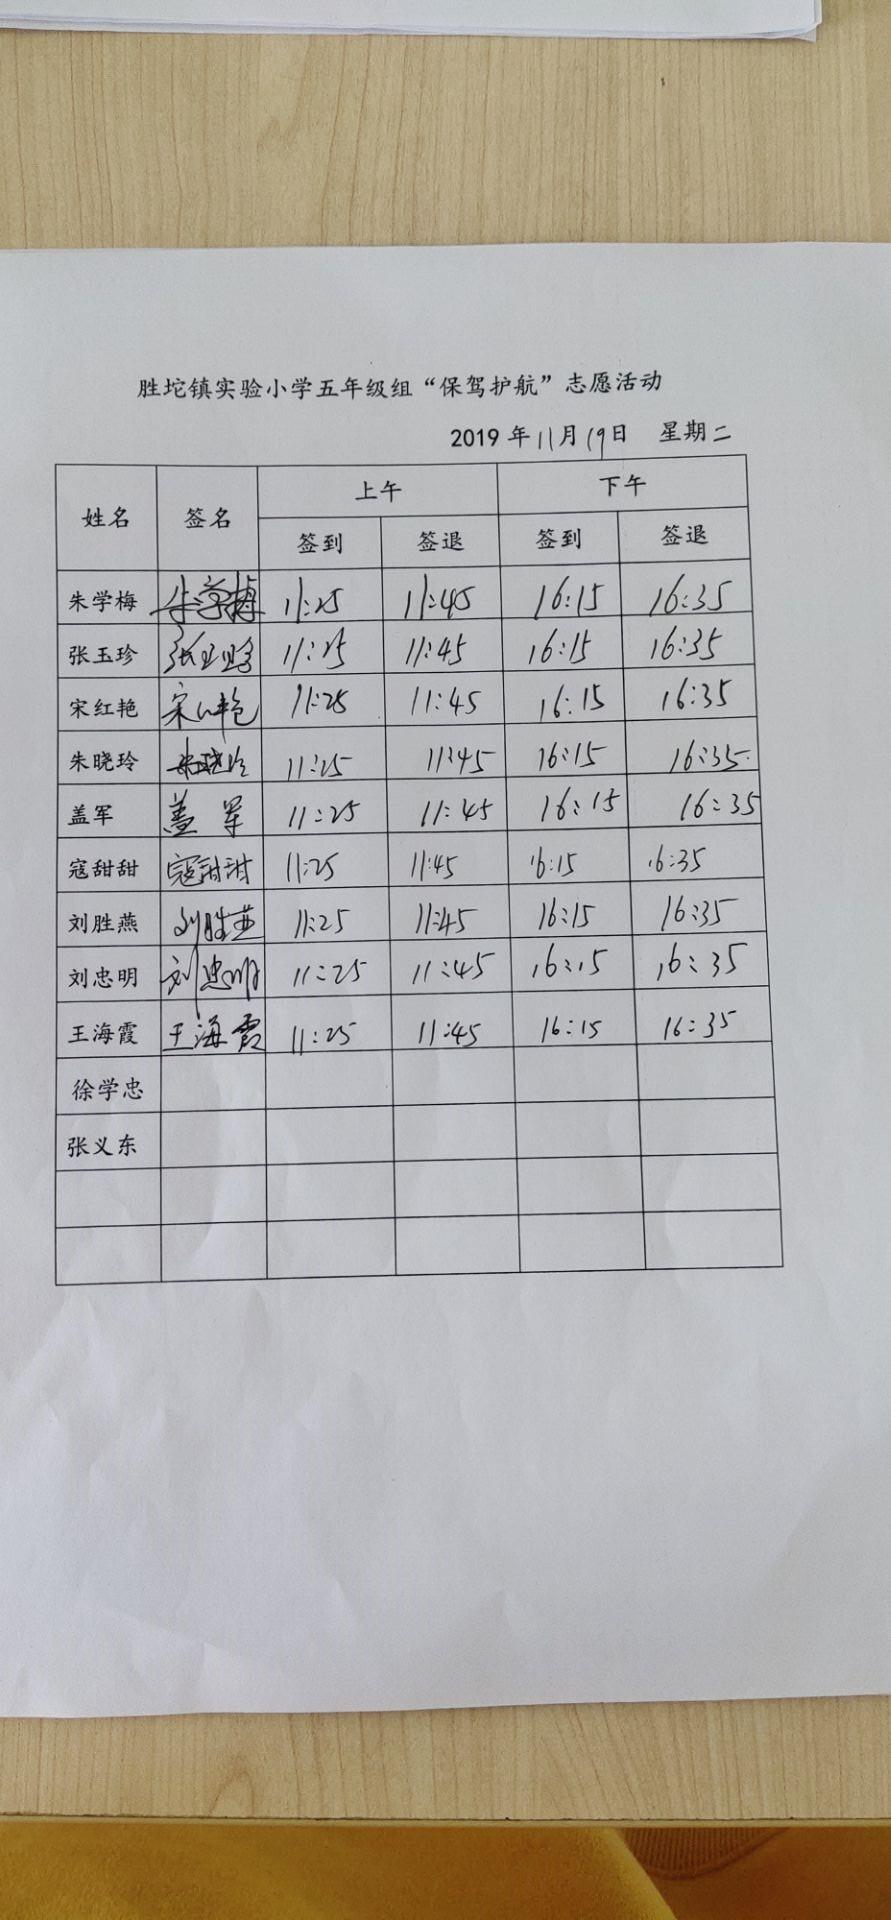 胜坨镇实验小学五年级组“保驾护航”志愿活动
2019年11月19日 星期二
姓名 签名 上午 下午
签到 签退 签到 签退
朱学梅 朱学梅 11:25 11:45 16:15 16:35
张玉珍 张玉珍 11:25 11:45 16:15 16:35
宋红艳 宋红艳 11:25 11:45 16:15 16:35
朱晓玲 朱晓玲 11:25 11:45 16:15 16:35
盖军 盖军 11:25 11:45 16:15 16:35
寇甜甜 寇甜甜 11:25 11:45 16:15 16:35
刘胜燕 刘胜燕 11:25 11:45 16:15 16:35
刘忠明 刘忠明 11:25 11:45 16:15 16:35
王海霞 王海霞 11:25 11:45 16:15 16:35
徐学忠
张义东